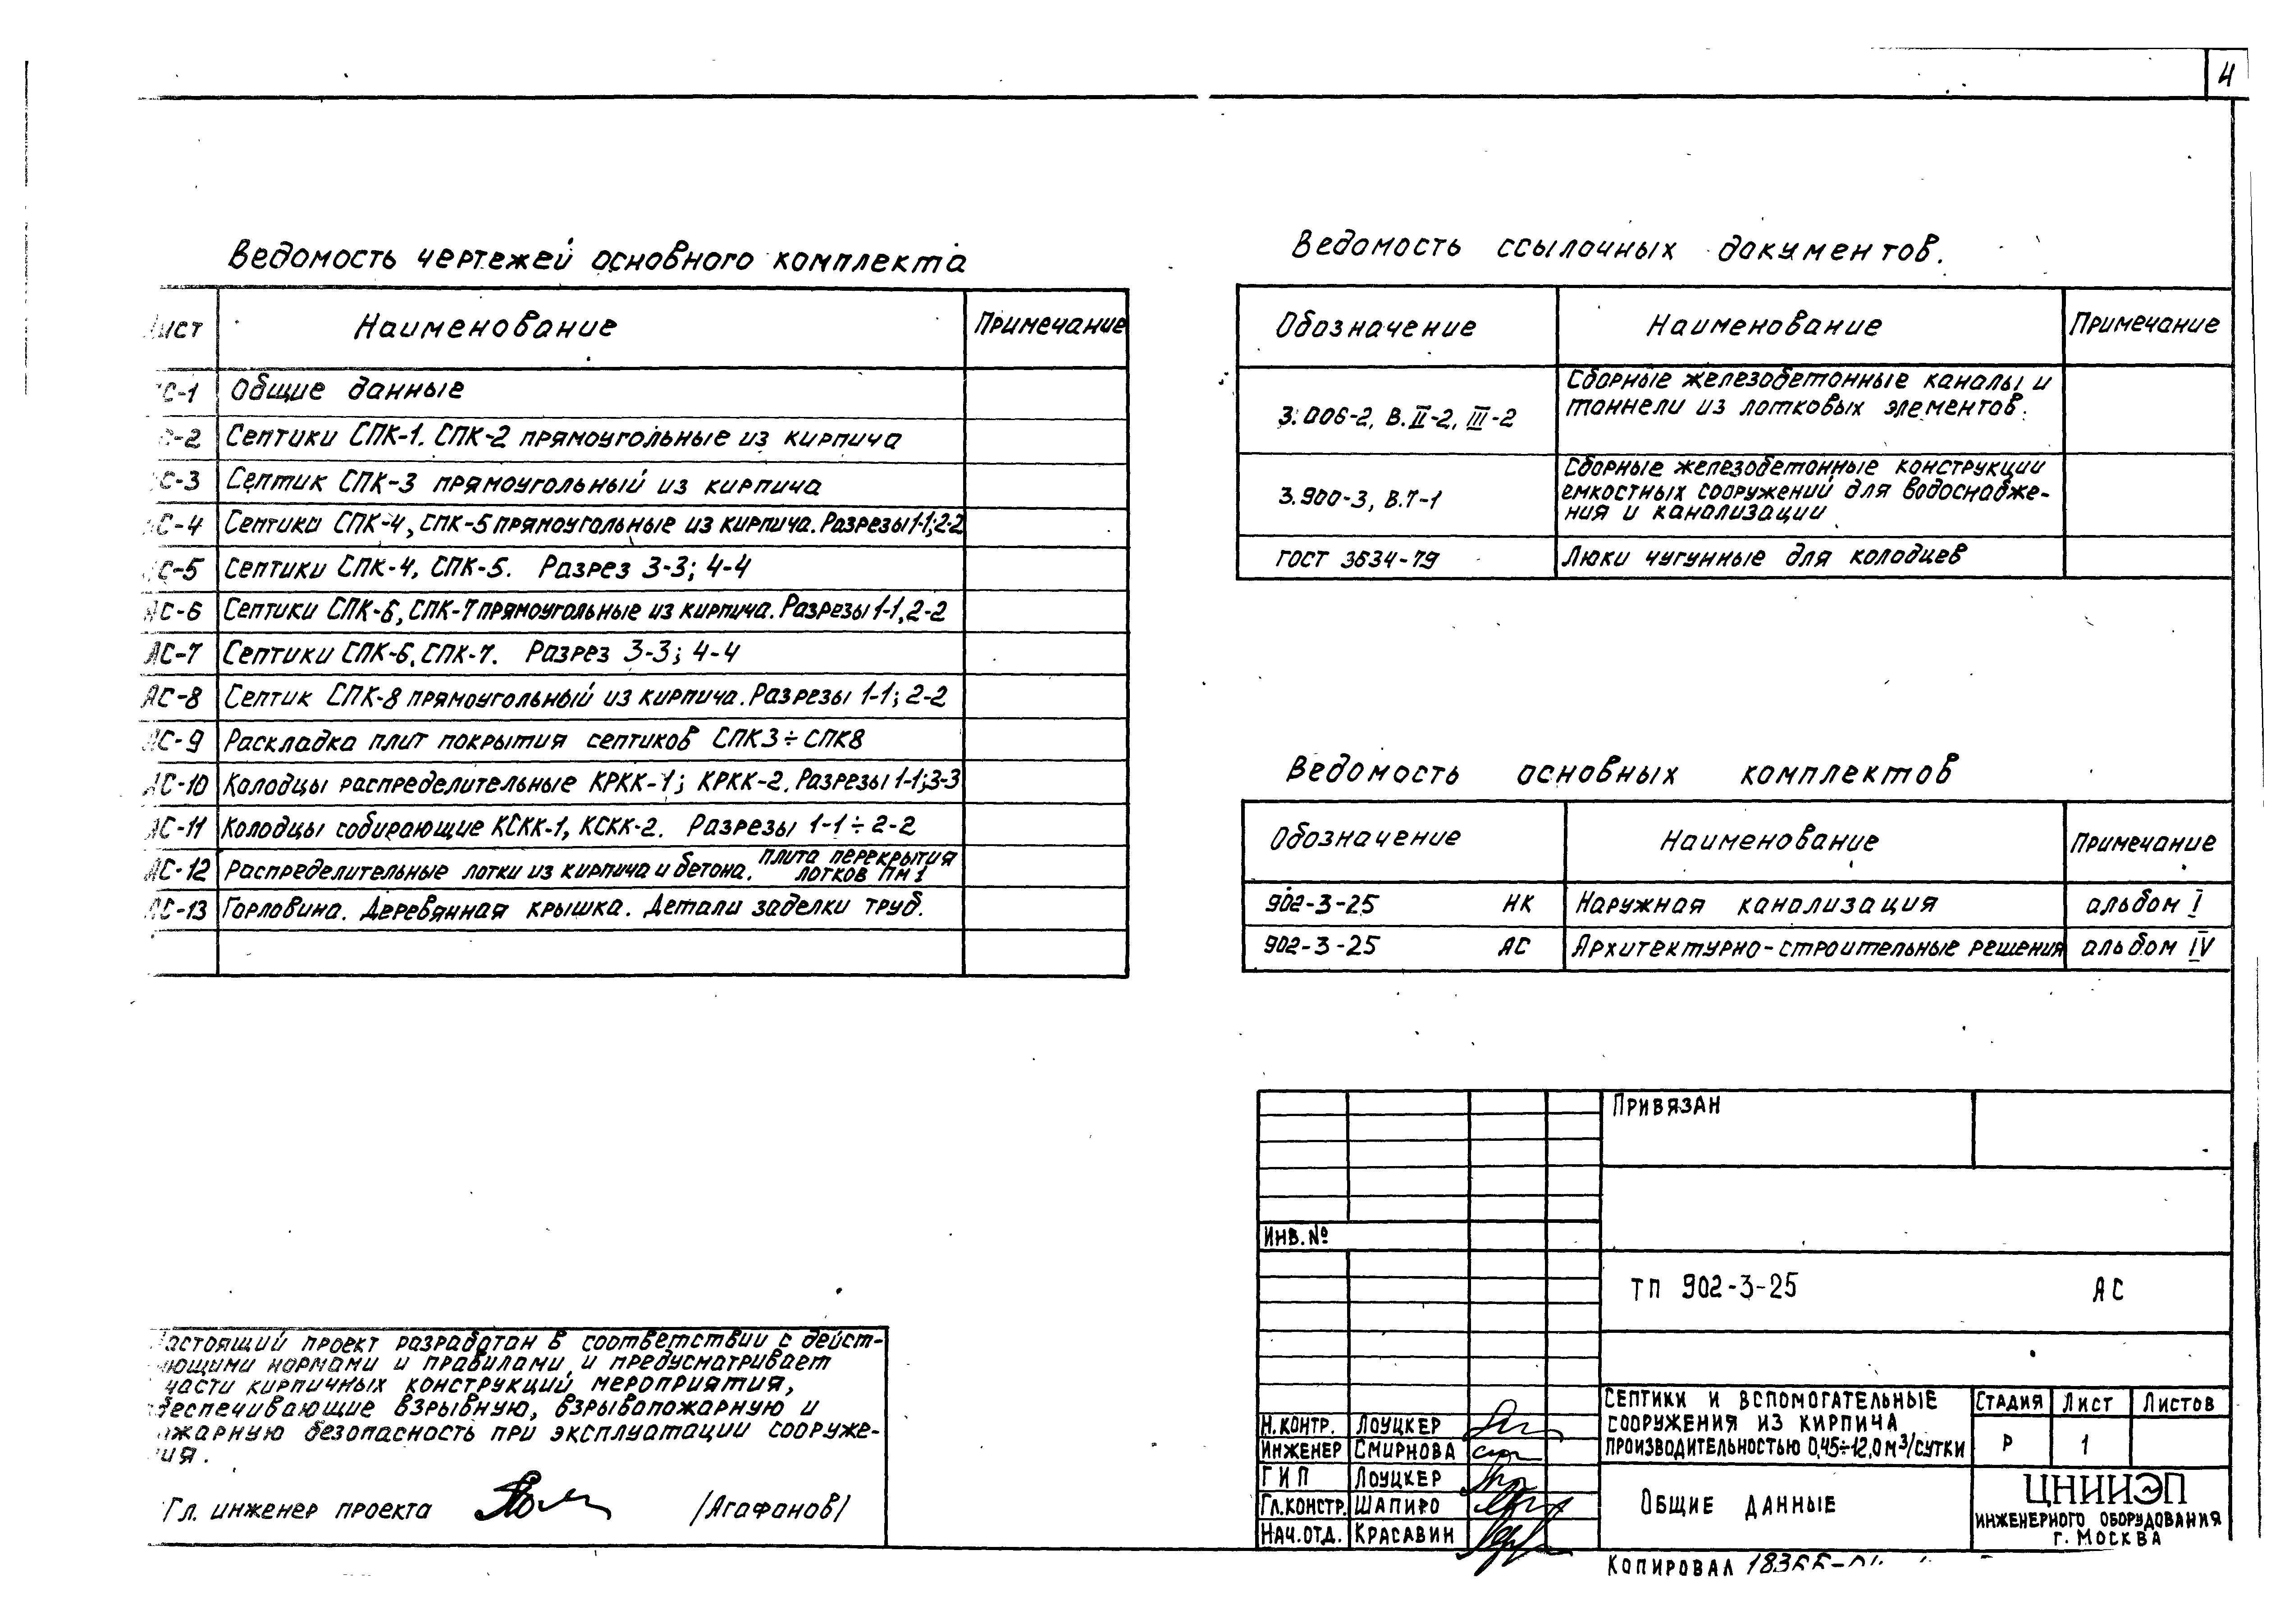 4
Ведомость чертежей основного комплекта
Лист Наименование Примечание
АС-1 Общие данные
АС-2 Септики СПК-1. СПК-2 прямоугольные из кирпича
АС-3 Септик СПК-3 прямоугольный из кирпича
АС-4 Септики СПК-4, СПК-5 прямоугольные из кирпича. Разрезы 1-1; 2-2
АС-5 Септики СПК-4, СПК-5. Разрез 3-3; 4-4
АС-6 Септики СПК-6, СПК-7 прямоугольные из кирпича. Разрезы 1-1, 2-2
АС-7 Септики СПК-6, СПК-7. Разрез 3-3; 4-4
АС-8 Септик СПК-8 прямоугольный из кирпича. Разрезы 1-1; 2-2
АС-9 Раскладка плит покрытия септиков СПК3÷СПК8
АС-10 Колодцы распределительные КРКК-1; КРКК-2. Разрезы 1-1; 3-3
АС-11 Колодцы собирающие КСКК-1, КСКК-2. Разрезы 1-1 ÷ 2-2
АС-12 Распределительные лотки из кирпича и бетона. плита перекрытия
лотков ПМ1
АС-13 Горловина. Деревянная крышка. Детали заделки труб.
Ведомость ссылочных документов.
Обозначение Наименование Примечание
3.006-2, В.II-2, III-2 Сборные железобетонные каналы и
тоннели из лотковых элементов.
3.900-3, В.7-1 Сборные железобетонные конструкции
емкостных сооружений для водоснабже-
ния и канализации
ГОСТ 3634-79 Люки чугунные для колодцев
Ведомость основных комплектов
Обозначение Наименование Примечание
902-3-25 НК Наружная канализация альбом I
902-3-25 АС Архитектурно-строительные решения альбом IV
астоящий проект разработан в соответствии с дейст-
ующими нормами и правилами и предусматривает
части кирпичных конструкций мероприятия,
беспечивающие взрывную, взрывопожарную и
жарную безопасность при эксплуатации сооруже-
ия.
Гл. инженер проекта /Агафонов/
Привязан
Инв. №
ТП 902-3-25 АС
Септики и вспомогательные
сооружения из кирпича
производительностью 0,45÷12,0 м³/сутки
Стадия Лист Листов
Р 1
Н.контр. Лоуцкер
Инженер Смирнова
ГИП Лоуцкер
Гл.констр. Шапиро
Нач.отд. Красавин
Общие данные
ЦНИИЭП
инженерного оборудования
г. Москва
Копировал